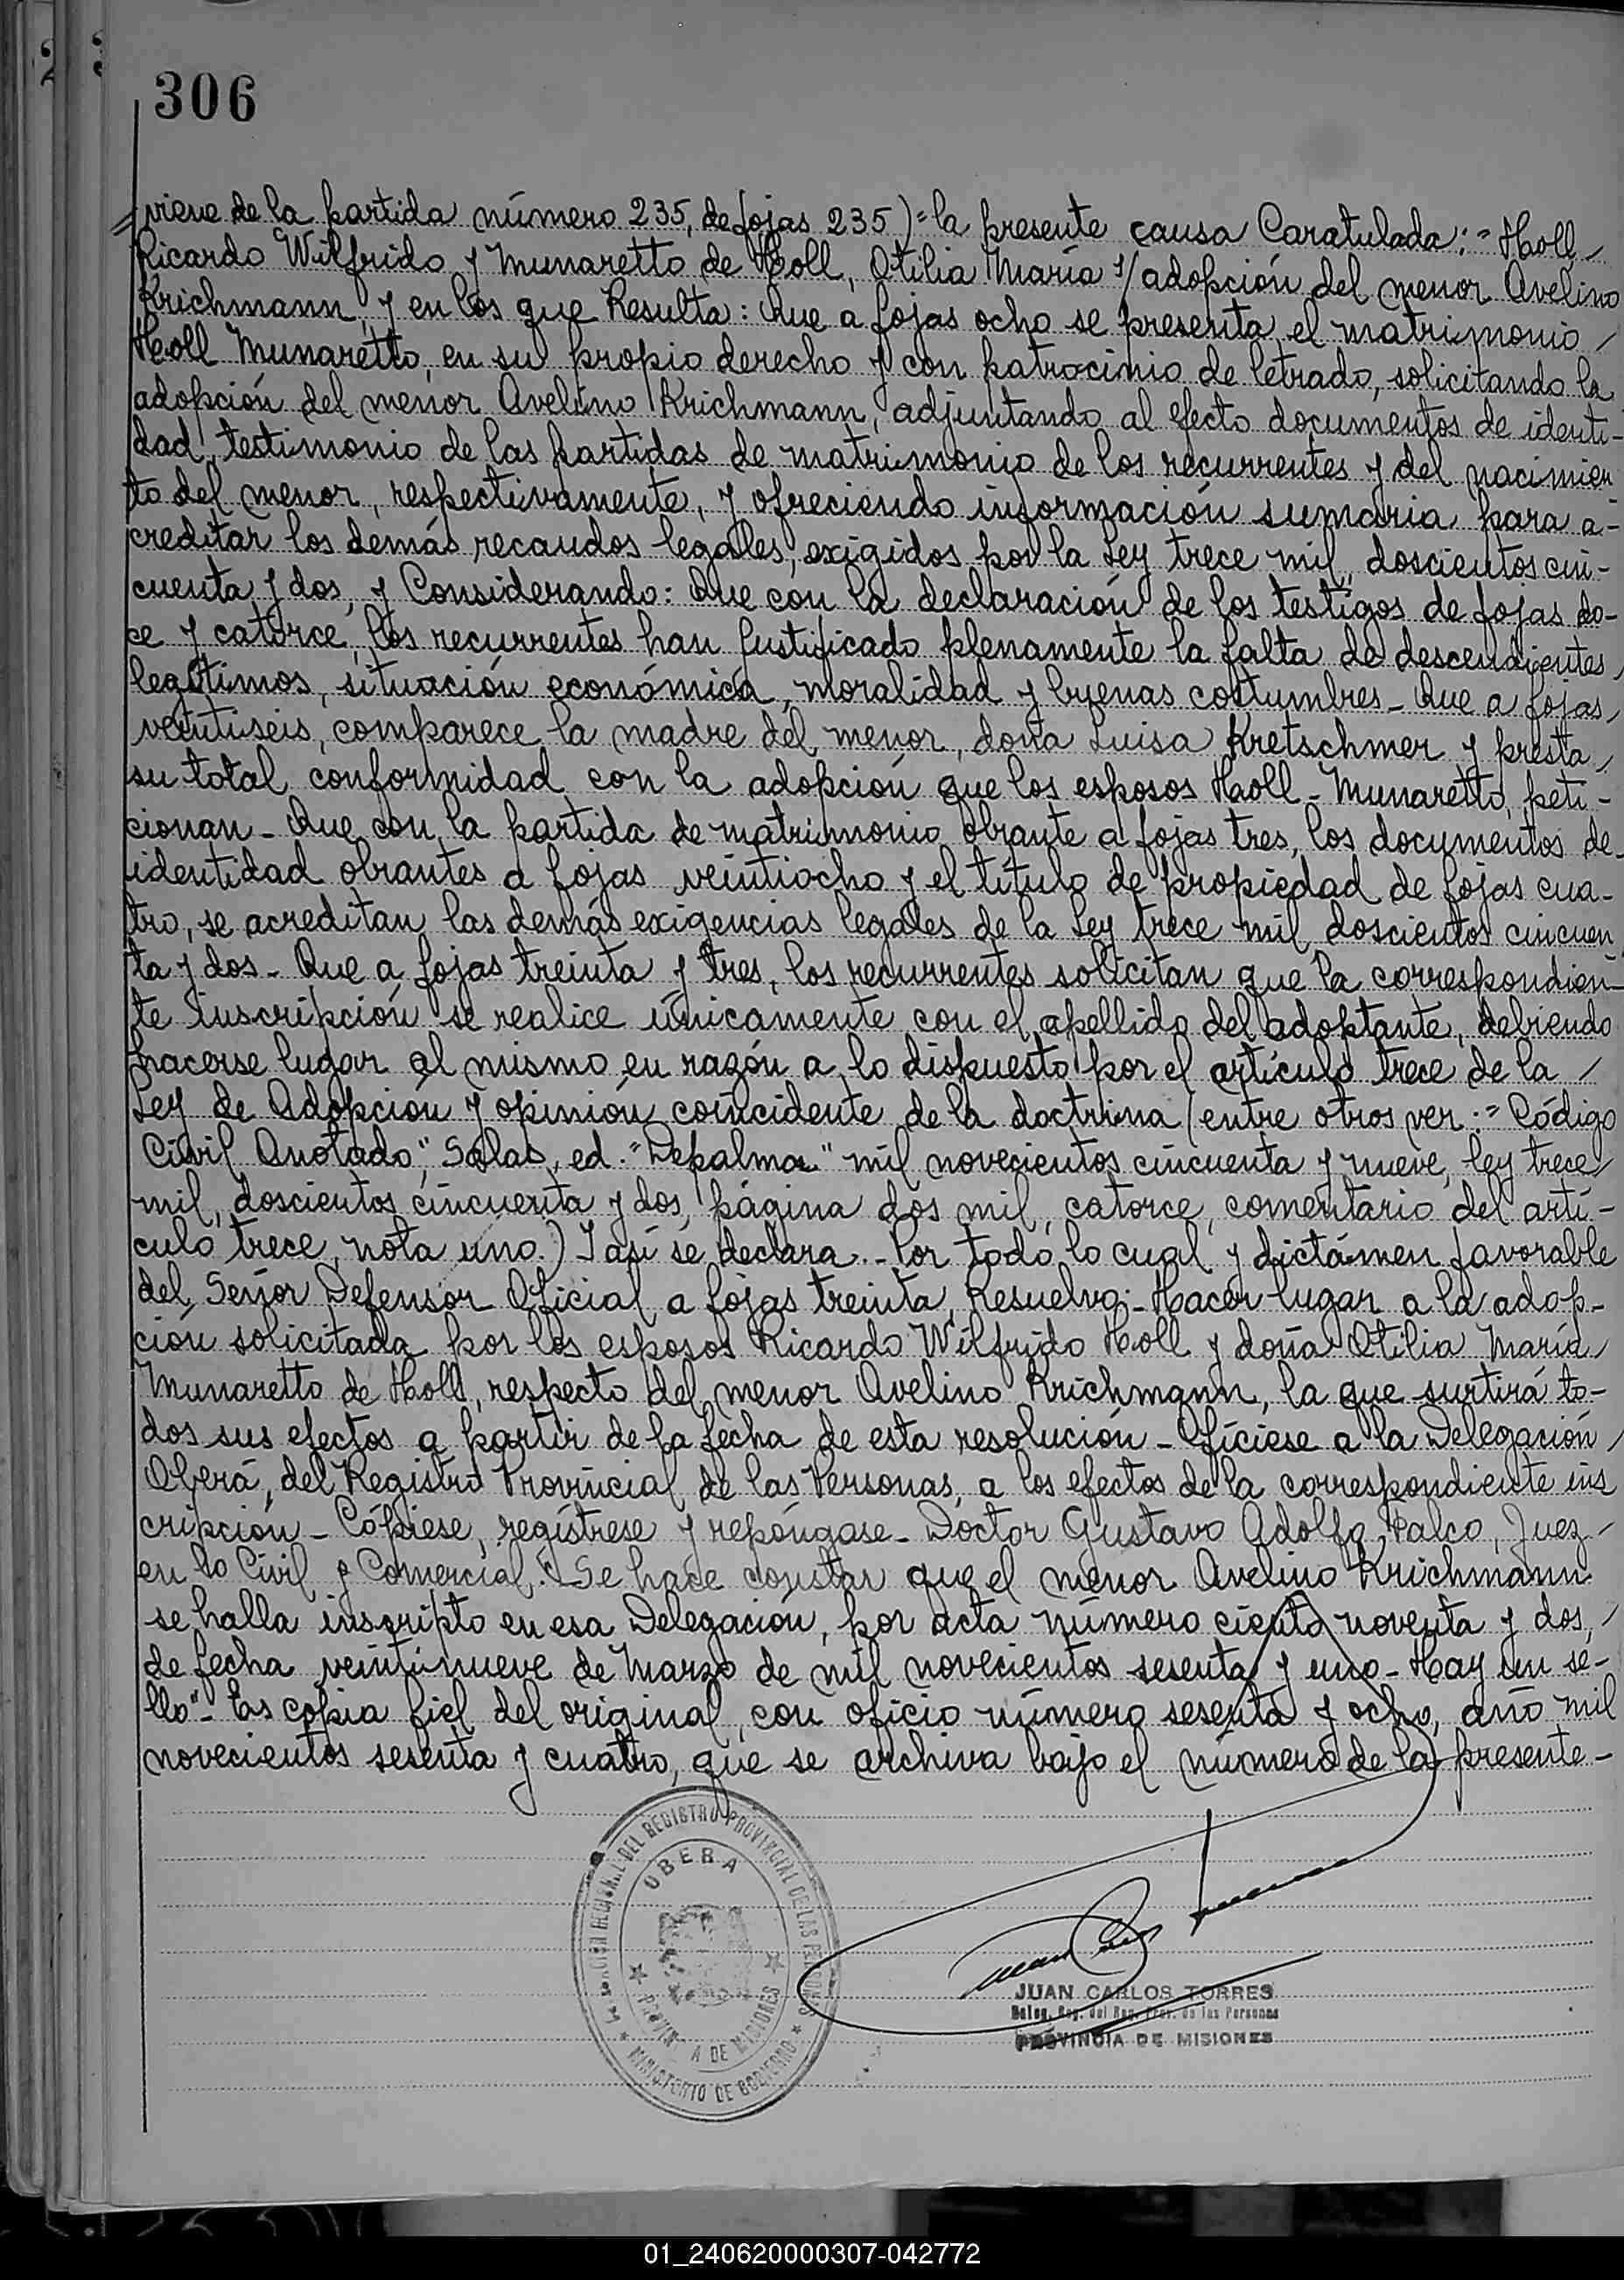 306
viene de la partida número 235, de fojas 235) = la presente causa Caratulada: = Holl
Ricardo Wilfrido y Munaretto de Holl, Otilia María s/ adopción del menor Avelino
Krichmann, y en los que Resulta: Que a fojas ocho se presenta el matrimonio
Holl Munaretto, en su propio derecho y con patrocinio de letrado, solicitando la
adopción del menor Avelino Krichmann, adjuntando al efecto documentos de identi-
dad, testimonio de las partidas de matrimonio de los recurrentes y del nacimien
to del menor, respectivamente, y ofreciendo información sumaria para a-
creditar los demás recaudos legales, exigidos por la Ley trece mil, doscientos cin-
cuenta y dos, y Considerando: Que con la declaración de los testigos de fojas do-
ce y catorce, los recurrentes han justificado plenamente la falta de descendientes
legítimos, situación económica, moralidad y buenas costumbres - Que a fojas
veintiseis, comparece la madre del menor, doña Luisa Kretschmer y presta
su total conformidad con la adopción que los esposos Holl - Munaretto, peti-
cionan - Que con la partida de matrimonio obrante a fojas tres, los documentos de
identidad obrantes a fojas veintiocho y el título de propiedad de fojas cua-
tro, se acreditan las demás exigencias legales de la Ley trece mil doscientos cincuen
ta y dos - Que a fojas treinta y tres, los recurrentes solicitan que la correspondien-
te inscripción se realice únicamente con el apellido del adoptante, debiendo
hacerse lugar al mismo en razón a lo dispuesto por el artículo trece de la
Ley de Adopción y opinión coincidente de la doctrina (entre otros ver: = Código
Civil Anotado", Salas, ed. "Depalma" mil novecientos cincuenta y nueve, ley trece
mil, doscientos cincuenta y dos, página dos mil, catorce, comentario del artí-
culo trece, nota uno.) Y así se declara. - Por todo lo cual y dictámen favorable
del Señor Defensor Oficial a fojas treinta, Resuelvo: - Hacer lugar a la adop-
ción solicitada por los esposos Ricardo Wilfrido Holl y doña Otilia María
Munaretto de Holl, respecto del menor Avelino Krichmann, la que surtirá to-
dos sus efectos a partir de la fecha de esta resolución - Ofíciese a la Delegación
Oberá, del Registro Provincial de las Personas, a los efectos de la correspondiente ins
cripción - Cópiese, regístrese y repóngase - Doctor Gustavo Adolfo Palco, Juez
en lo Civil y Comercial. Se hace constar que el menor Avelino Krichmann
se halla inscripto en esa Delegación, por acta número ciento noventa y dos,
de fecha veintinueve de Marzo de mil novecientos sesenta y uno - Hay un se-
llo" - Es copia fiel del original, con oficio número sesenta y ocho, año mil
novecientos sesenta y cuatro, que se archiva bajo el número de la presente -
REGIONAL DEL REGISTRO PROVINCIAL DE LAS PERSONAS
OBERA
PROVINCIA DE MISIONES
MINISTERIO DE GOBIERNO
JUAN CARLOS TORRES
Deleg. Reg. del Reg. Prov. de las Personas
PROVINCIA DE MISIONES
01_240620000307-042772